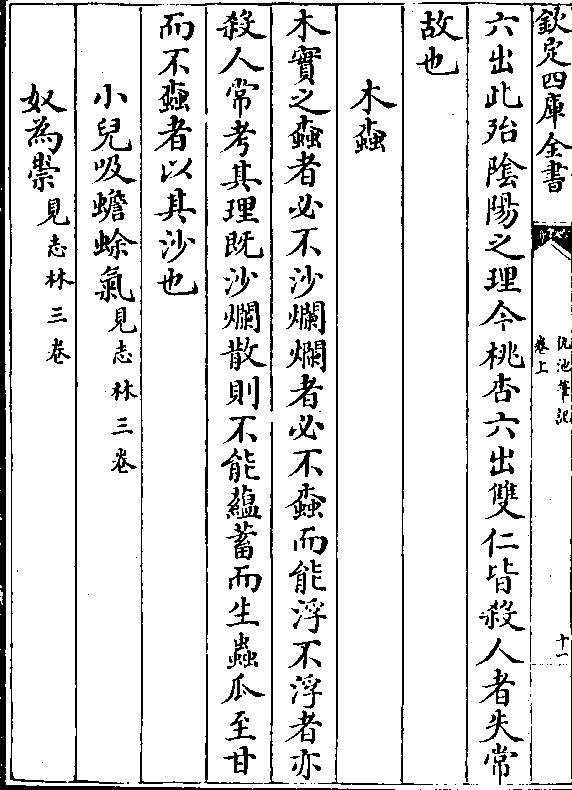 欽定四庫全書
仇池筆記
卷上
十一
六出此殆陰陽之理今桃杏六出雙仁皆殺人者失常
故也
木蠹
木實之蠹者必不沙爛爛者必不蠹而能浮不浮者亦
殺人常考其理既沙爛散則不能蘊蓄而生蟲瓜至甘
而不蠹者以其沙也
小兒吸蟾蜍氣見志林三卷
奴為祟見志林三卷